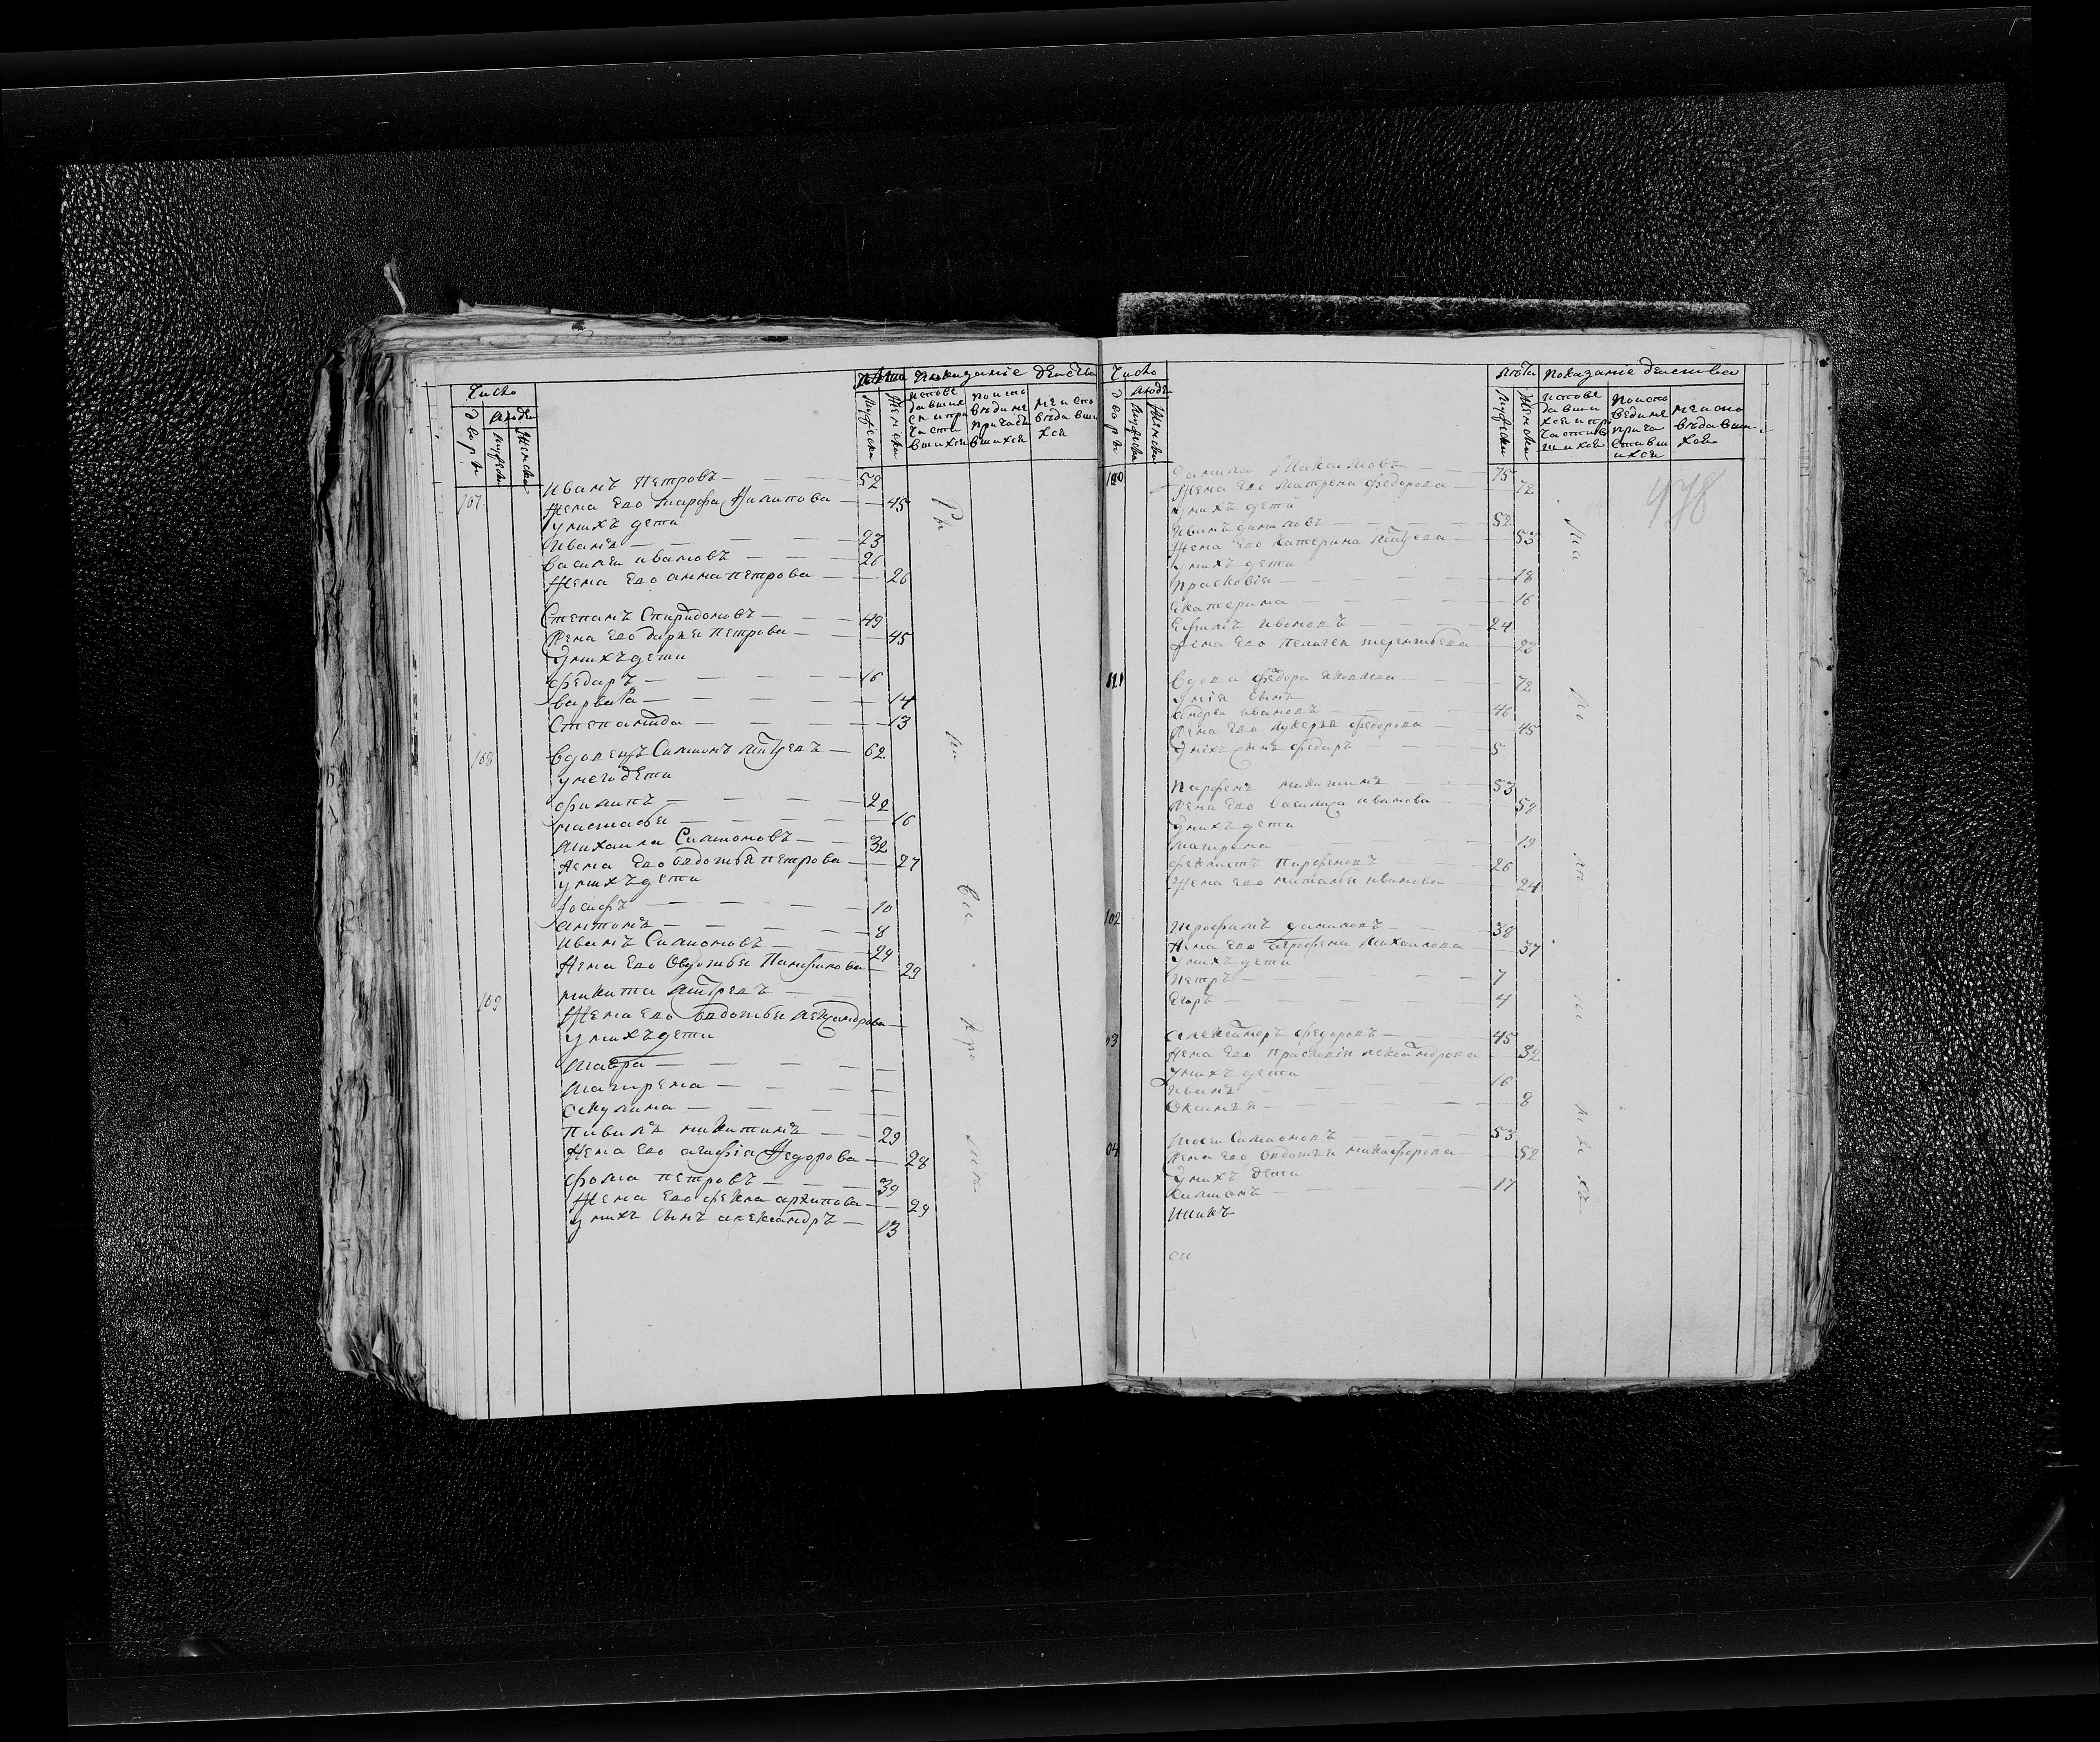 Число
Людей
дворъ
мужеска
женска
Лѣта
Показание действа
мужеска
женска
испове
давших
ся и при
части
вшихся
по испо
вѣди не
причасти
вшихся
не испо
вѣдавши
хся
107
Иванъ Петровъ 52
Жена Его Марфа Филипова 45
у нихъ дети
Иванъ 23
Василеи ивановъ 26
Жена Его анна петрова 26
Степанъ Спиридоновъ 49
Жена Его дарья петрова 45
у нихъ дети
федаръ 16
варвара 14
Степанида 13
108
Вдовецъ Симионъ 62
у него дети
филипъ 22
настасья 16
Михаила Симионовъ 32
Жена Его Овдотья петрова 27
у нихъ дети
Иосифъ 10
антонъ 8
Иванъ Симионовъ 29
Жена Его Овдотья Панфилова 29
109
никита
Жена Его Овдотья
у нихъ дети
Мавра
Матрена
акулина
никитинъ 29
Жена Его агафия Федорова 28
Фома петровъ 39
Жена Его фекла архипова 29
у нихъ Сынъ александръ 13
Число
Людей
дворъ
мужеска
женска
лѣта
показание действа
мужеска
женска
испове
давши
хся и при
частив
шихся
по испо
ведине
прича
стивши
ихся
не испо
вѣдавши
хся
478
Данила Максимовъ 75
Жена Его Матрена федорова 72
у нихъ дети
Иванъ даниловъ 52
Жена Его Катерина 53
у нихъ дети
прасковия 18
Екатерина 16
Ефимъ Ивановъ 24
Жена Его Пелагея терентьева 22
Вдова федора яковлева 72
у нея Сынъ
андреи ивановъ 46
Жена Его лукерья федорова 45
у нихъ сынъ федаръ 5
Парфенъ никитинъ 53
Жена Его Василиса иванова 52
у нихъ дети
матрена 19
феклистъ Парфеновъ 26
Жена Его наталья иванова 24
102
Трофимъ даниловъ 38
Жена Его Михаилова 37
у нихъ дети
Петръ 7
Егоръ 4
03
Александеръ Федоровъ 45
Жена Его Прасковия 32
у нихъ дети
Иванъ 16
Оксинья 8
04
Симионовъ 53
Жена Его Овдотья никифорова 52
у нихъ дети
Симионъ 17